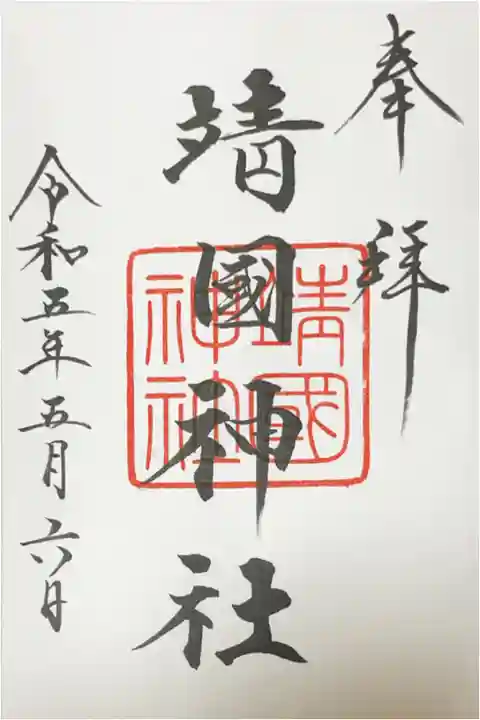 奉拝
靖國神社
靖國神社
令和五年五月六日